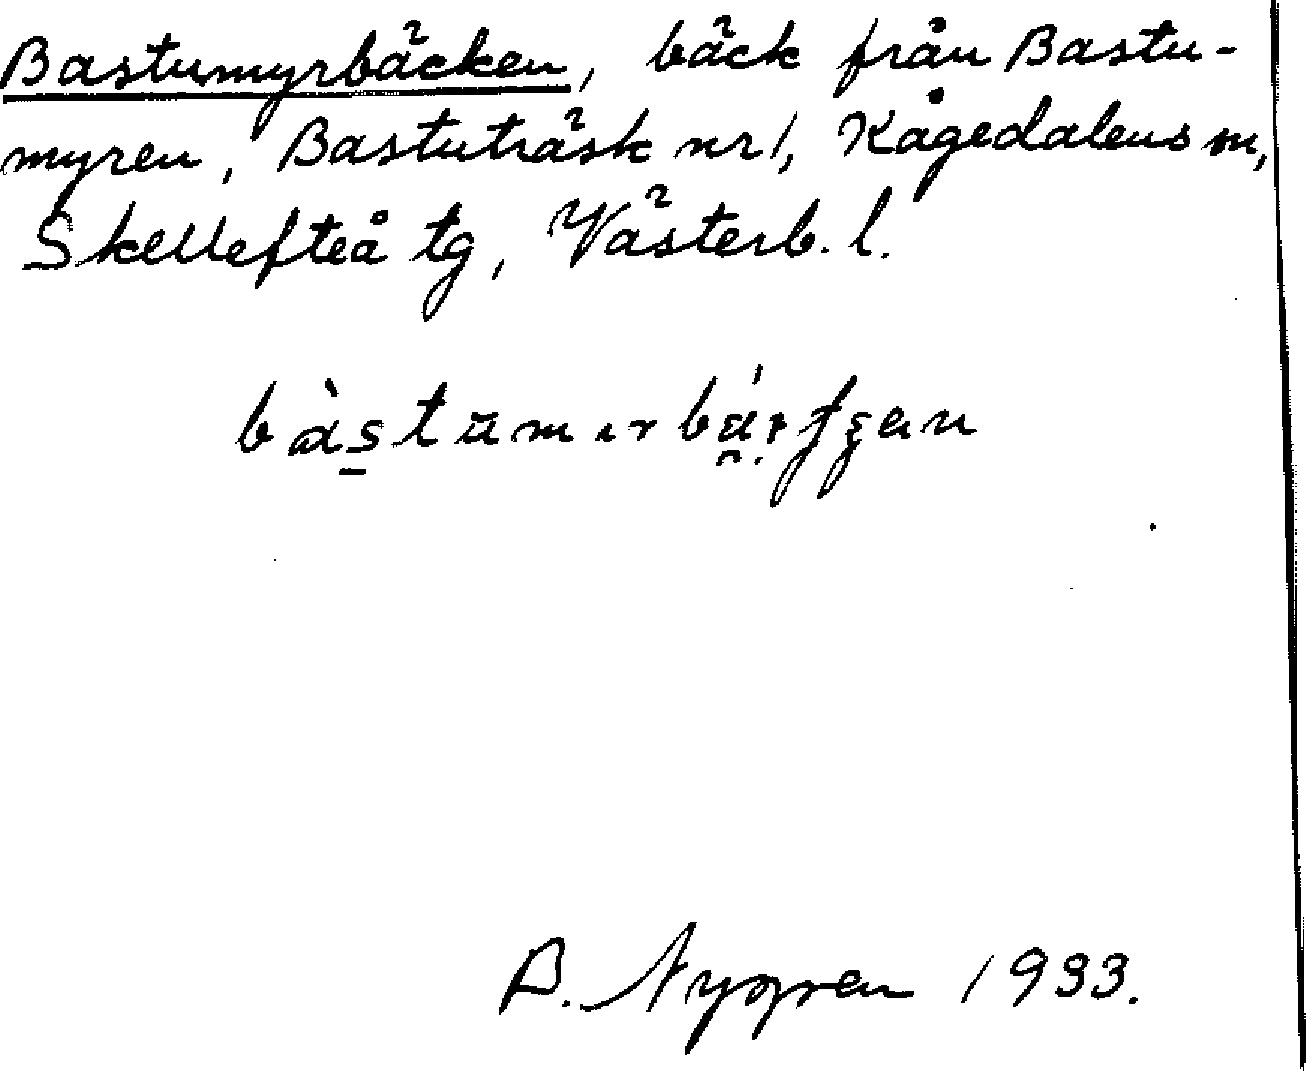 Bastumyrbäcken, bäck från Bastu-
myren, Bastuträsk nr 1, Kågedalens m,
Skellefteå tg, Västerb. l.
B. Nygren 1933.